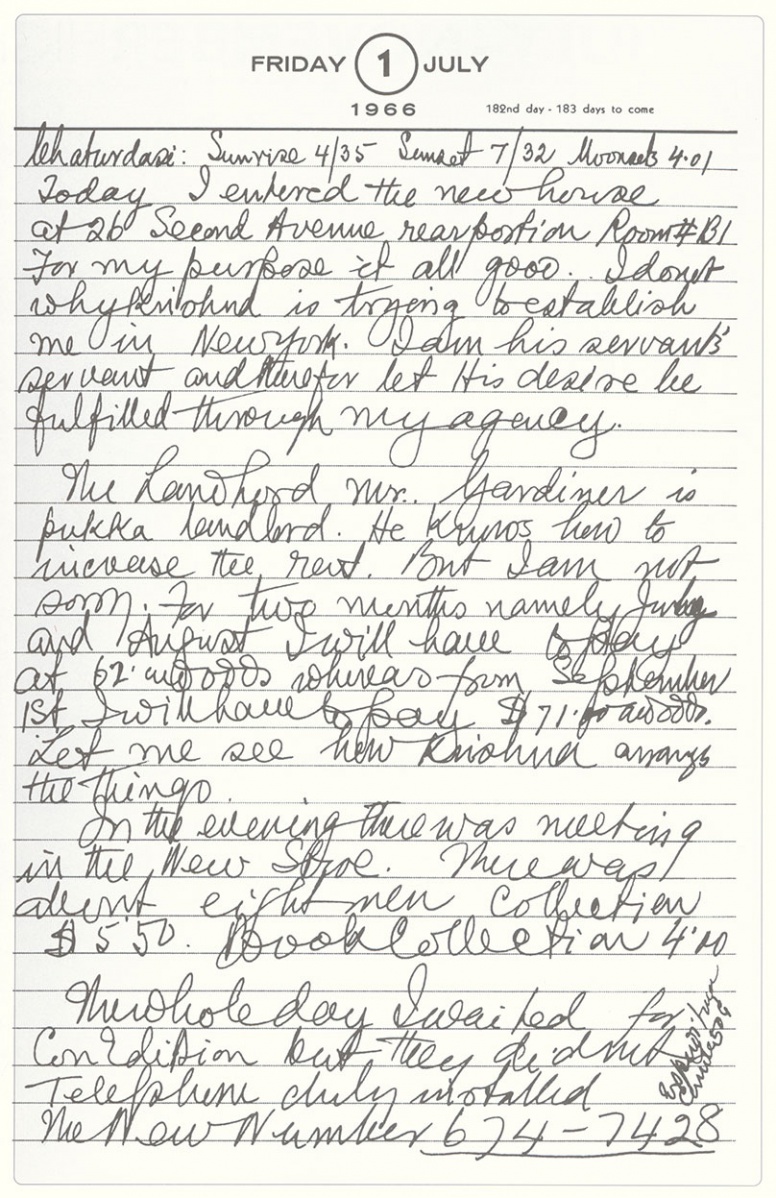 FRIDAY 1 JULY
1966 182nd day - 183 days to come
Chaturdasi: Sunrise 4/35 Sunset 7/32 Moonsets 4.01
Today I entered the new house
at 26 Second Avenue rear portion Room # B1
For my purpose it all good. I do not
why Krishna is trying to establish
me in Newyork. I am his servant's
servant and therefor let His desire be
fulfilled through my agency.
The Landlord Mr. Gardiner is
pukka landlord. He Knows how to
increase the rent. But I am not
sorry. For two months namely July
and August I will have to pay
at 62. whereas from September
1st I will have to pay $ 71.
Let me see how Krishna arranges
the things.
In the evening there was meeting
in the New Stroe. There was
about eight men Collection
$ 5.50. Book Collection 4.00
The whole day I waited for
Con Edition but they did not
Telephone duly installed
The New Number 674-7428